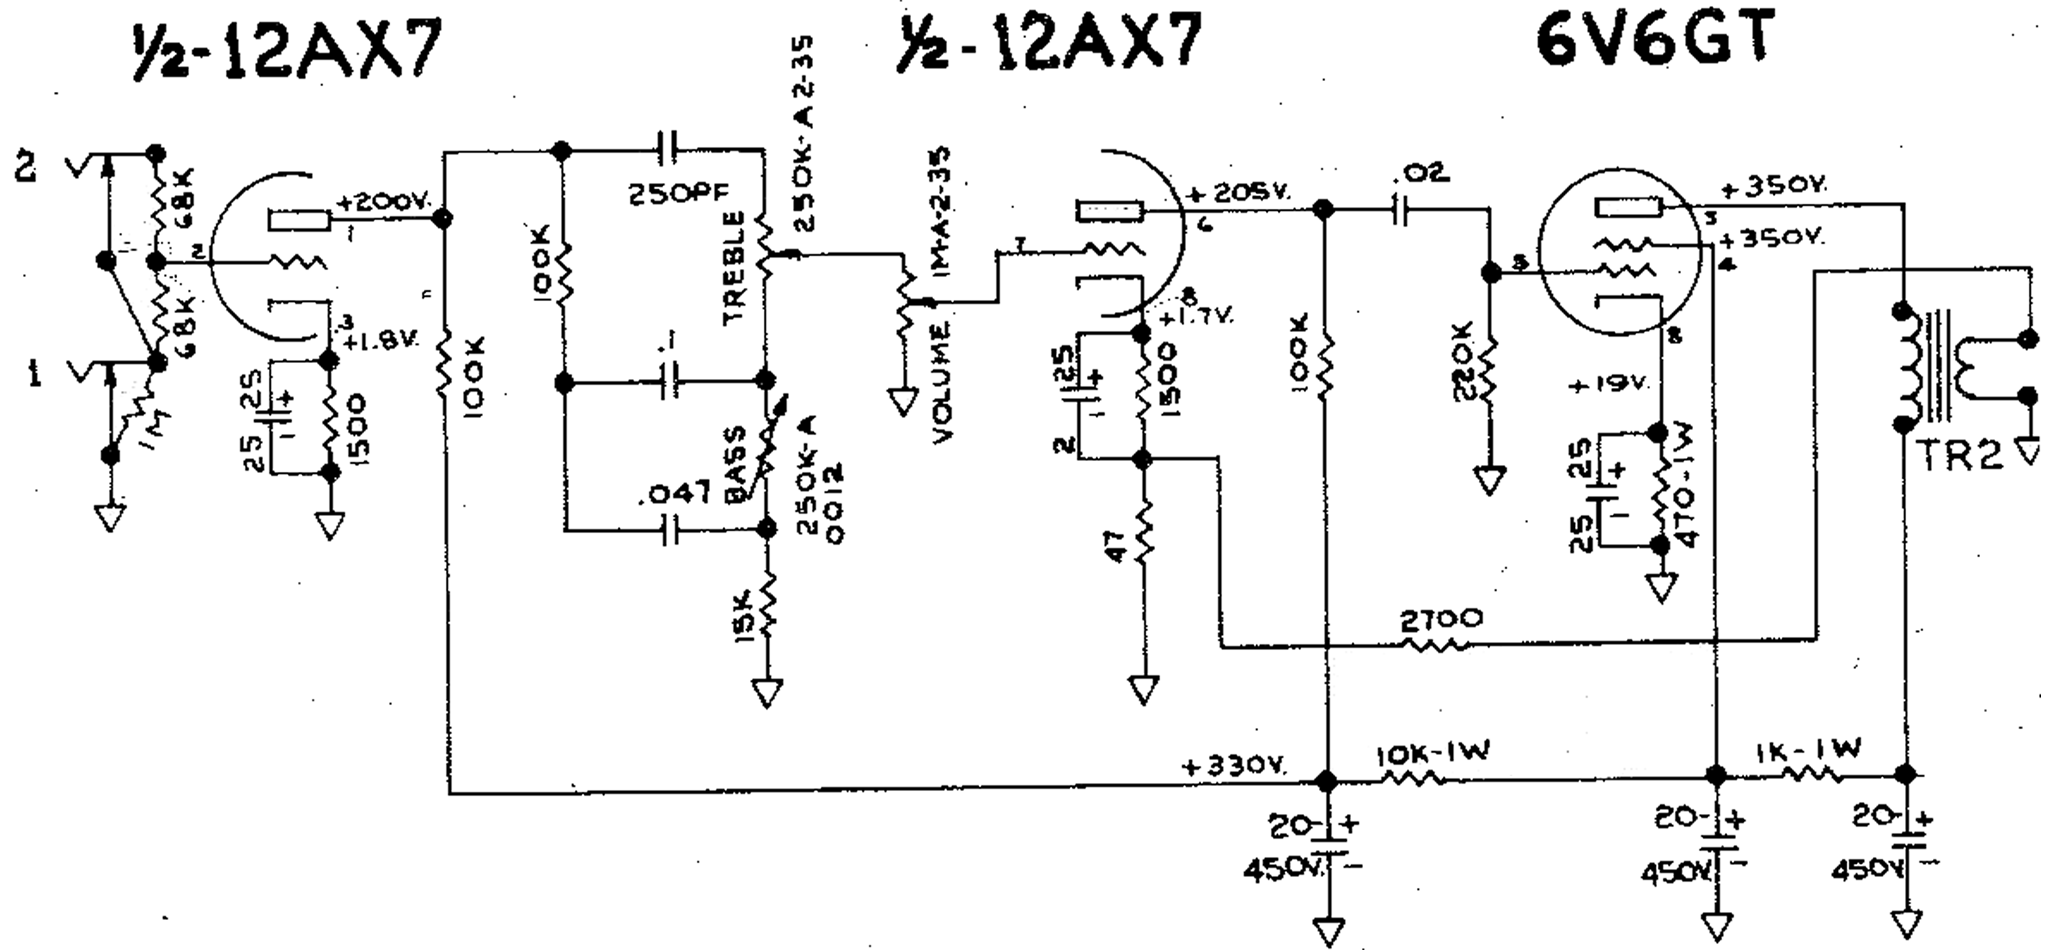 ½-12AX7
½-12AX7
6V6GT
2
68K
2
68K
1
1M
+200V.
1
3
+1.8V.
25
25
+
-
1500
100K
250PF
100K
TREBLE
250K-A2-35
.1
BASS
250K-A
0012
.047
15K
VOLUME 1M-A-2-35
7
+205V.
6
8
+1.7V.
25
2
+
-
1500
47
100K
.02
220K
5
+350V.
3
+350V.
4
8
+19V.
25
25
+
-
470-1W
TR2
2700
+330V.
10K-1W
1K-1W
20-
+
450V.
-
20-
+
450V.
-
20-
+
450V.
-